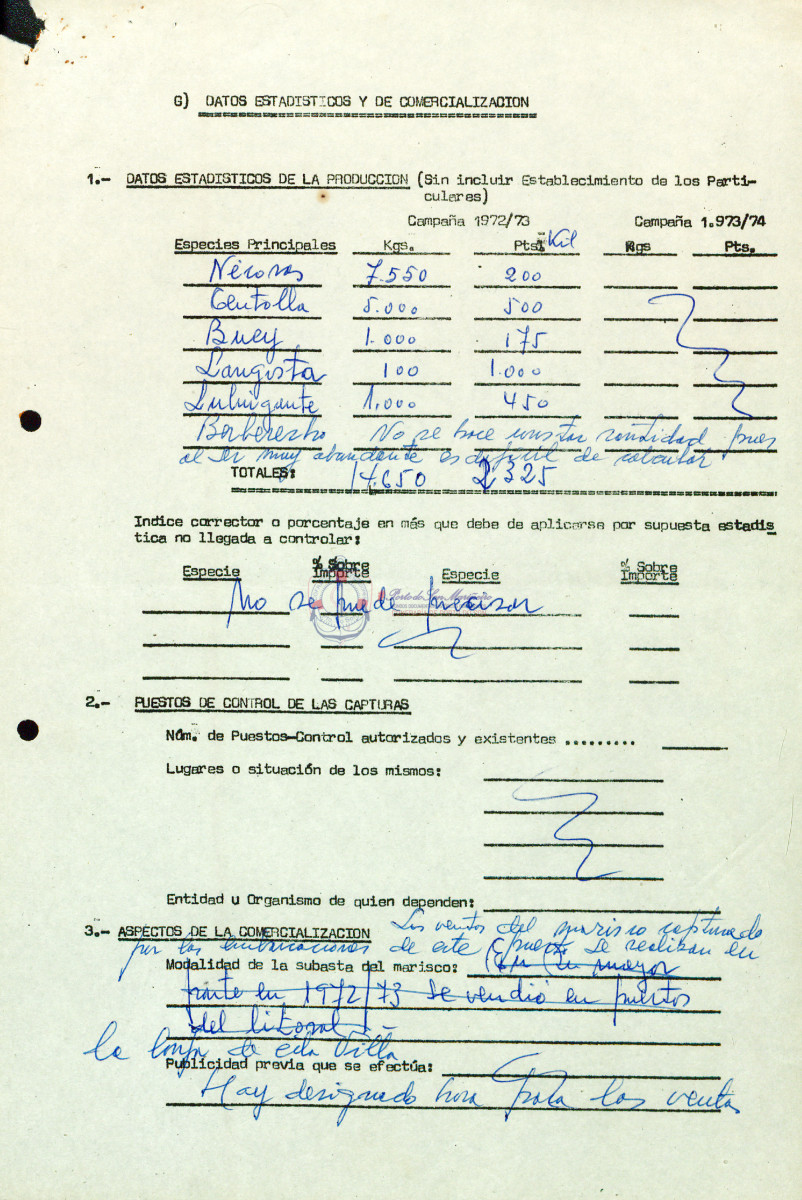 G) DATOS ESTADISTICOS Y DE COMERCIALIZACION
1.- DATOS ESTADISTICOS DE LA PRODUCCION (Sin incluir Establecimiento de los Parti-
culares)
Campaña 1972/73 Campaña 1.973/74
Especies Principales Kgs. Pts. Kil Kgs Pts.
Nécoras 7.550 200
Centolla 5.000 500
Buey 1.000 175
Langosta 100 1.000
Lubrigante 1.000 450
Berberecho No se hace constar cantidad pues
al ser muy abundante es dificil de calcular
TOTALES: 14.650 2325
Indice corrector o porcentaje en más que debe de aplicarse por supuesta estadis
tica no llegada a controlar:
Especie % Sobre Importe Especie % Sobre Importe
No se puede precisar
2.- PUESTOS DE CONTROL DE LAS CAPTURAS
Núm. de Puestos-Control autorizados y existentes .........
Lugares o situación de los mismos:
Entidad u Organismo de quien dependen:
3.- ASPECTOS DE LA COMERCIALIZACION Las ventas del marisco capturado
por las embarcaciones de este puerto se realizan en
Modalidad de la subasta del marisco: En su mayor
parte en 1972/73 se vendió en puertos
del litoral
la lonja de esta Villa
Publicidad previa que se efectúa:
Hay designado hora para las ventas